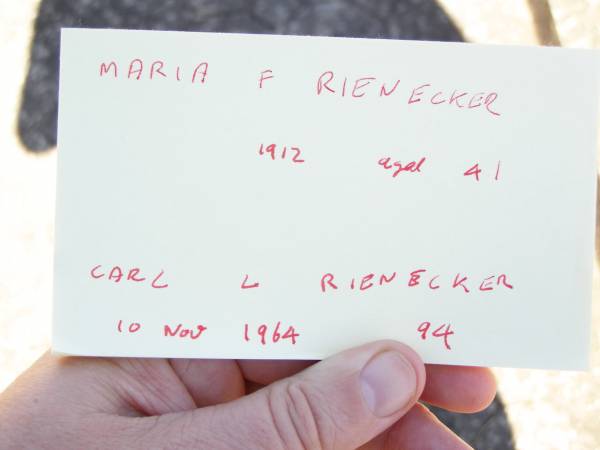 MARIA F RIENECKER
1912 aged 41
CARL L RIENECKER
10 Nov 1964 94